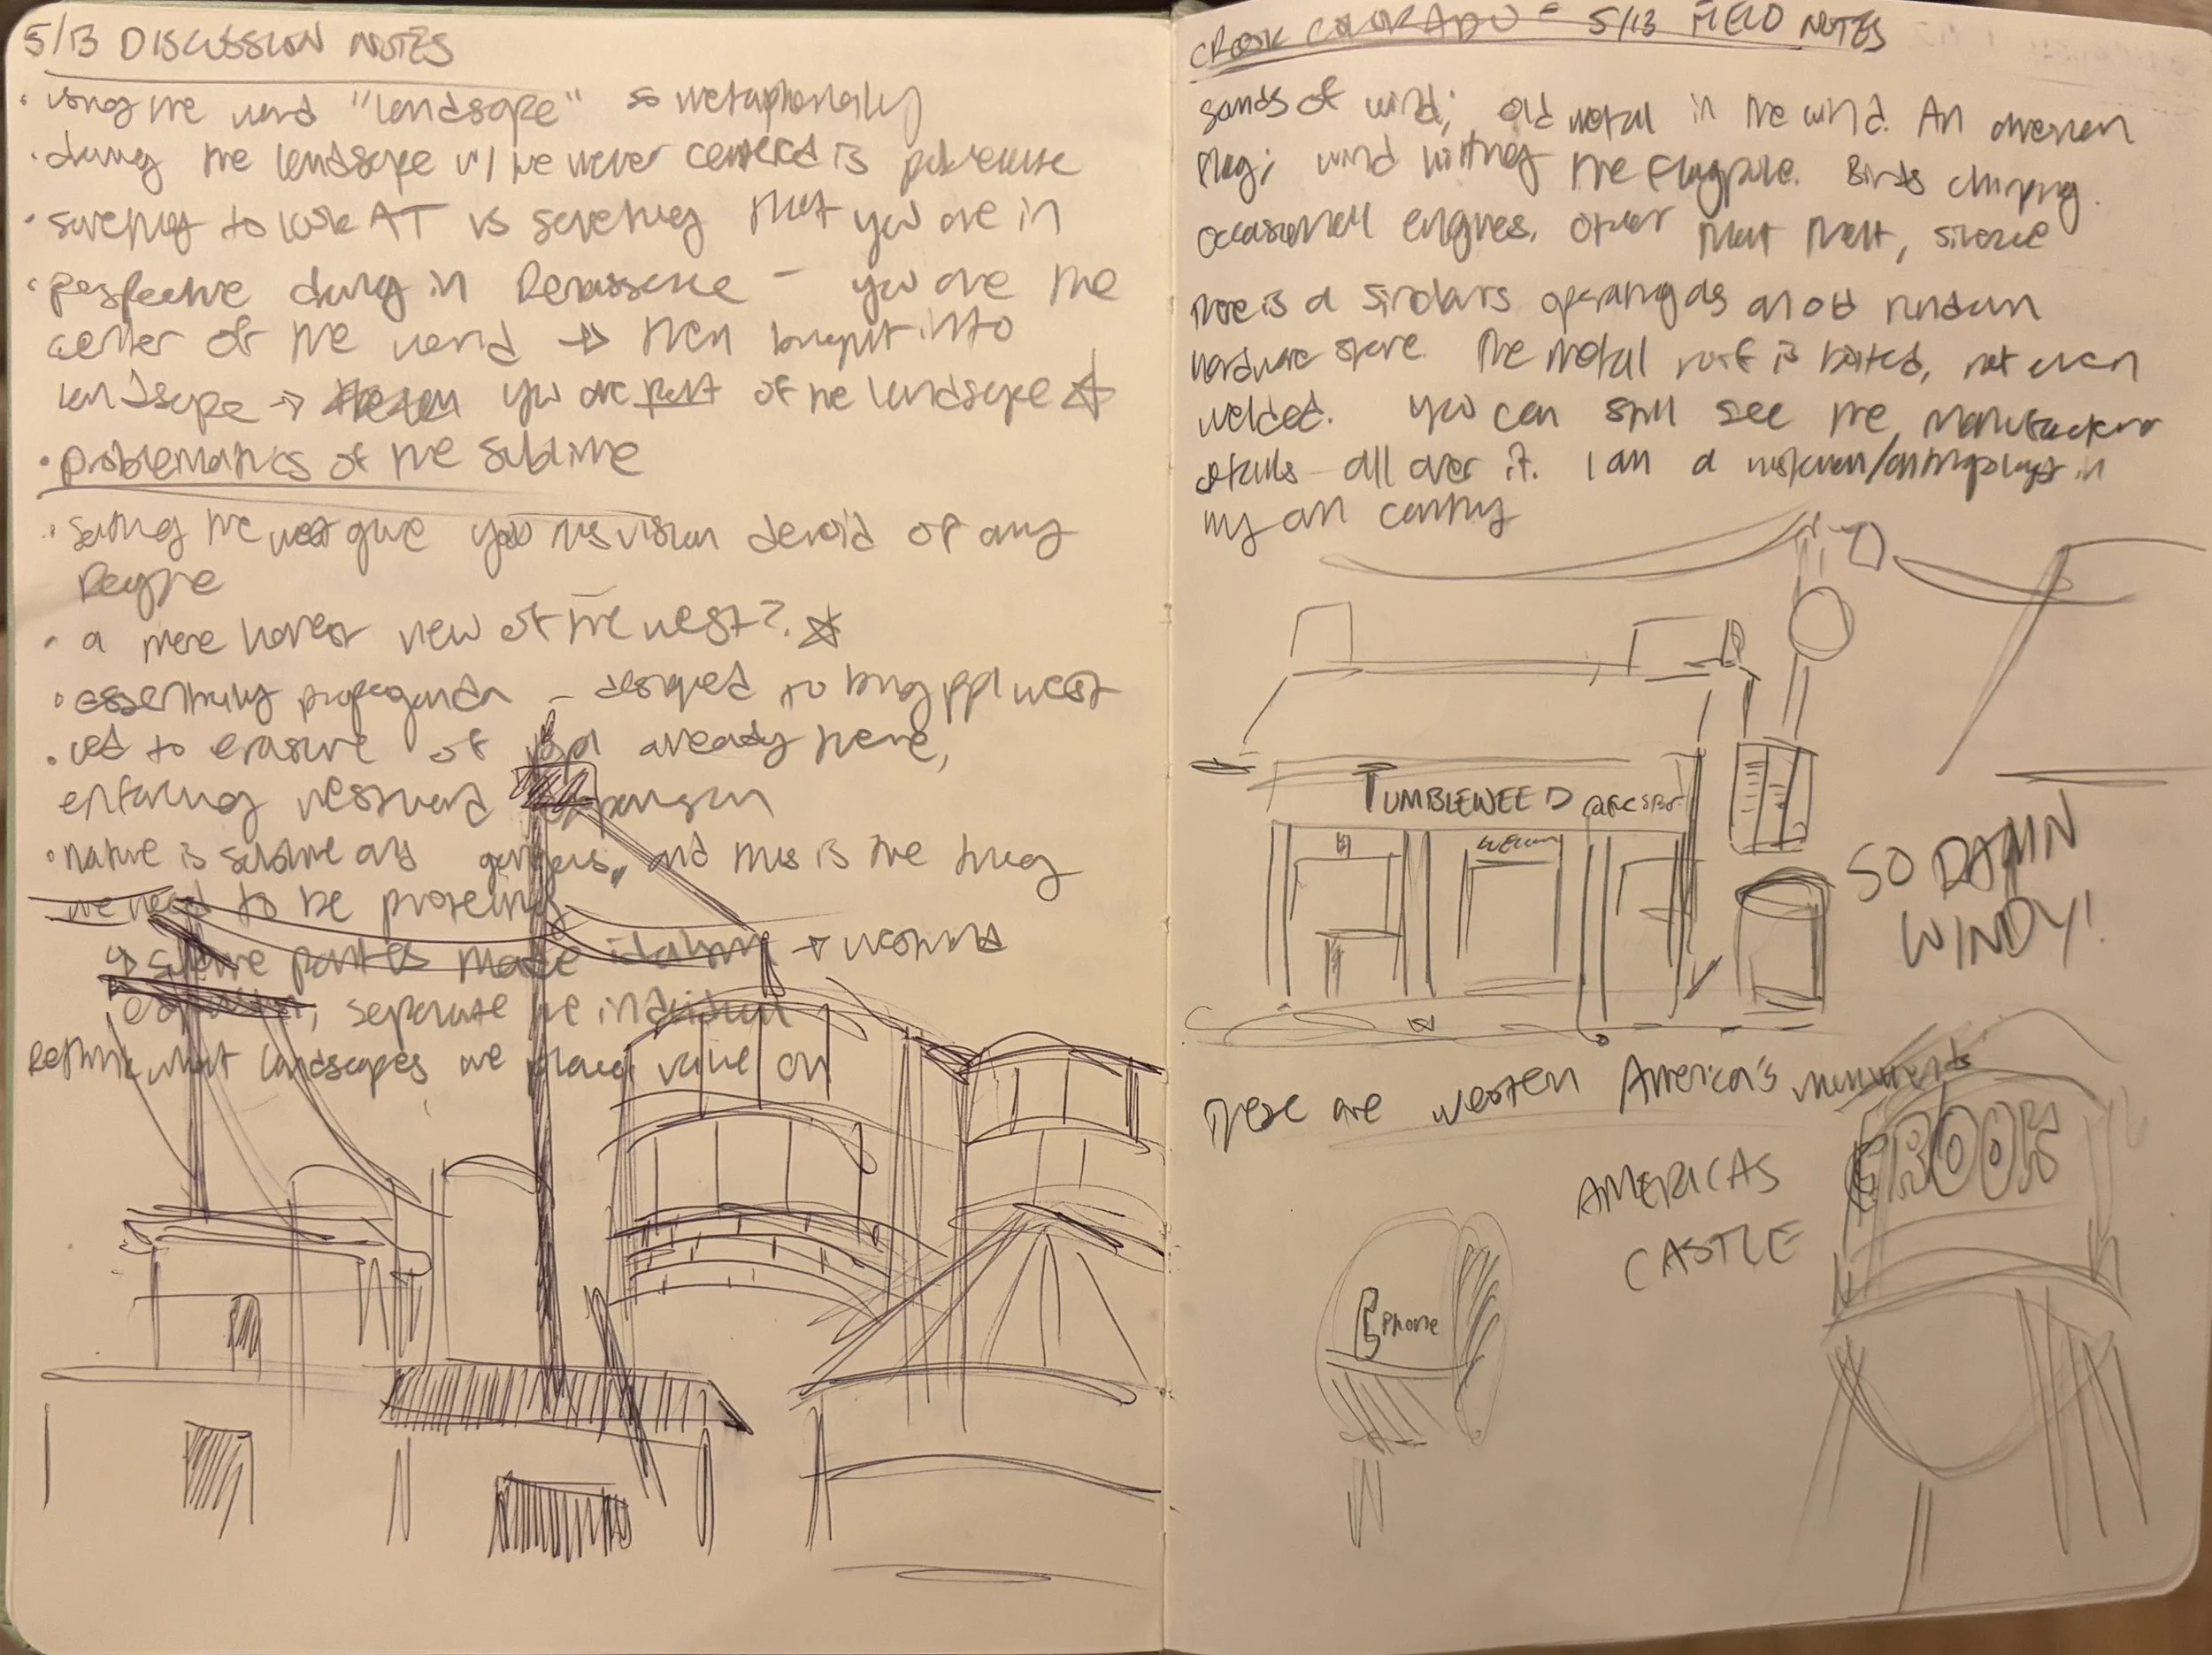 5/13 DISCUSSION NOTES
• using the word "landscape" so metaphorically
• doing the landscape w/ the viewer centered is
• something to look AT vs something that you are in
• perspective doing in Renaissance — you are the
center of the world → then brought into
landscape → you are part of the landscape ☆
• problematics of the sublime
• give you this vision devoid of any
people
• a more honest view of the west? ☆
• essentially propaganda – designed to bring ppl west
• led to erasure of ppl already here,
enforcing westward expansion
• nature is sublime and gorgeous, and this is the thing
we need to be protecting
↳ sublime made → westward
expansion, separate the individual
Rethink what landscapes we placed value on
CROOK COLORADO = 5/13 FIELD NOTES
Sounds of wind; old metal in the wind. An American
flag; wind hitting the flagpole. Birds chirping.
Occasional engines. Other than that, silence
There is a operating as an old rundown
hardware store. The metal roof is bolted, not even
welded. You can still see the manufacturer
details all over it. I am a in
my own country
TUMBLEWEED
WELCOME
SO DAMN
WINDY!
These are western America's monuments
AMERICAS
CASTLE
CROOK
Phone